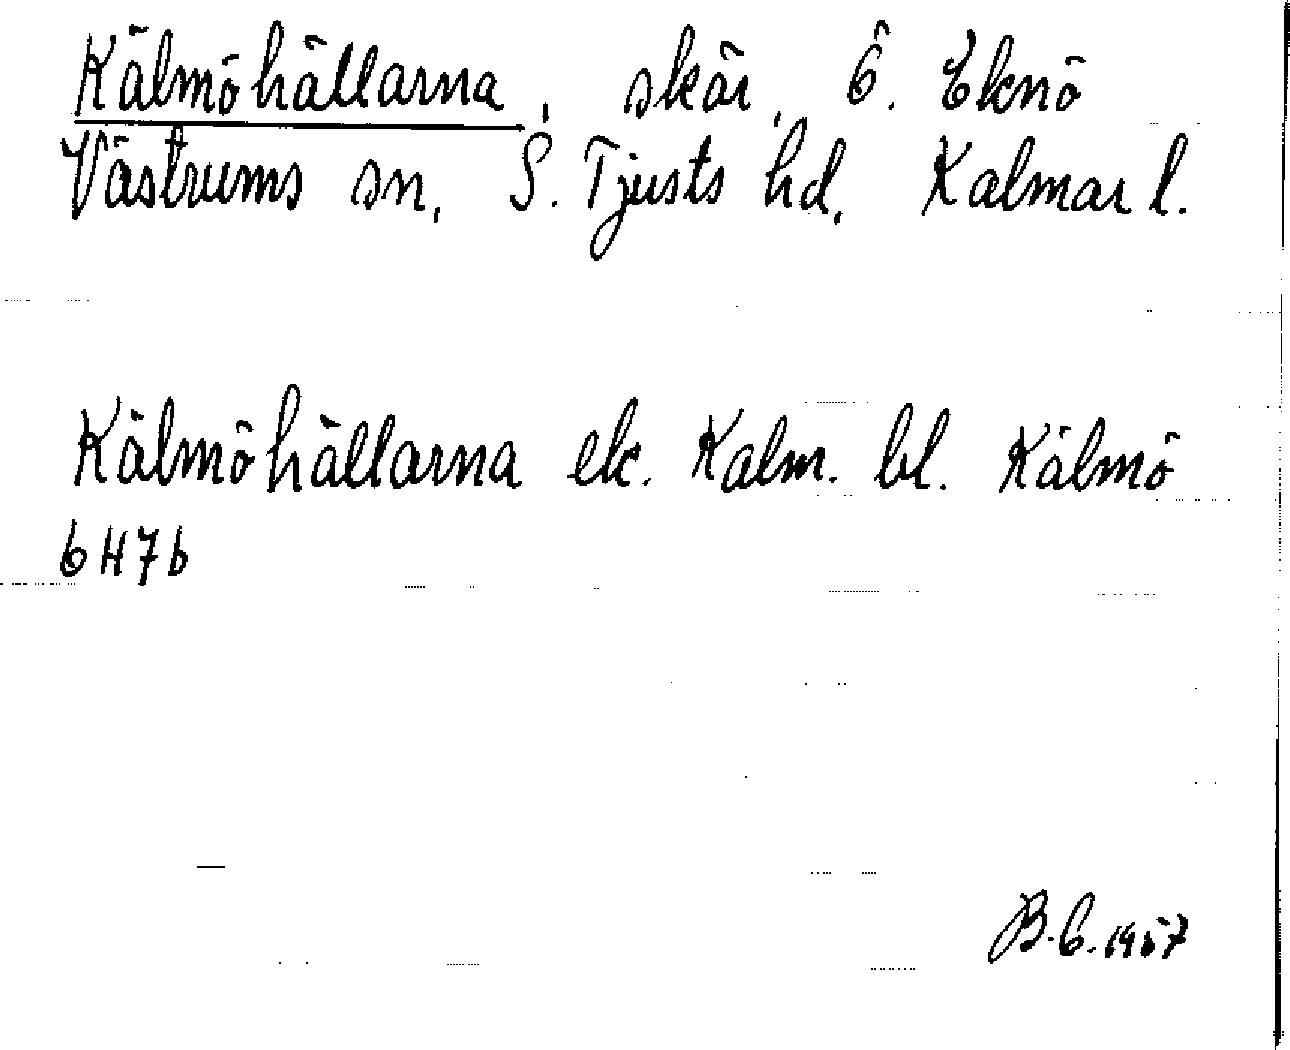 Kälmöhällarna, skär, Ö. Eknö
Västrums sn, S. Tjusts hd, Kalmar l.
Kälmöhällarna ek. Kalm. bl. Kälmö
6H7b
B.E. 1957